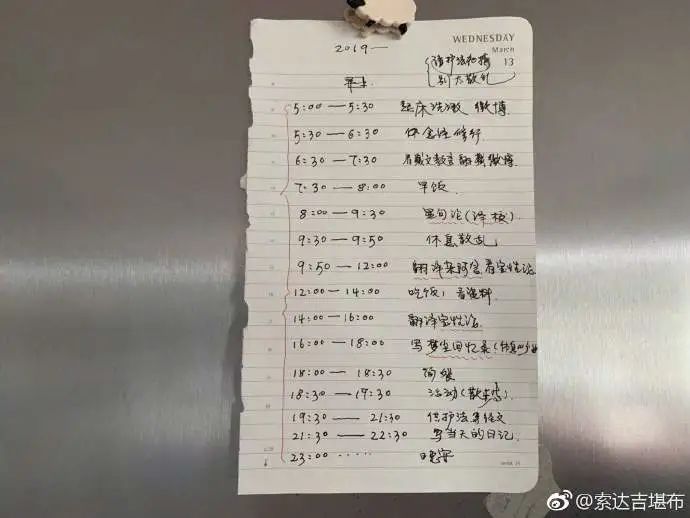 WEDNESDAY
March
13
2019—
请护法加持
别太散乱
早上
5:00 — 5:30 起床洗漱 微博
5:30 — 6:30 修行
6:30 — 7:30 看藏文教言 翻 微博
7:30 — 8:00 早饭
8:00 — 9:30 (译校)
9:30 — 9:50 休息散乱
9:50 — 12:00 翻译 看宝性论
12:00 — 14:00 吃饭; 看资料
14:00 — 16:00 翻译宝性论
16:00 — 18:00 写梦尘回忆录
18:00 — 18:30
18:30 — 19:30 活动(散步等)
19:30 — 21:30 供护法 经文
21:30 — 22:30 写当天的日记
23:00 ····· 晚安
@索达吉堪布